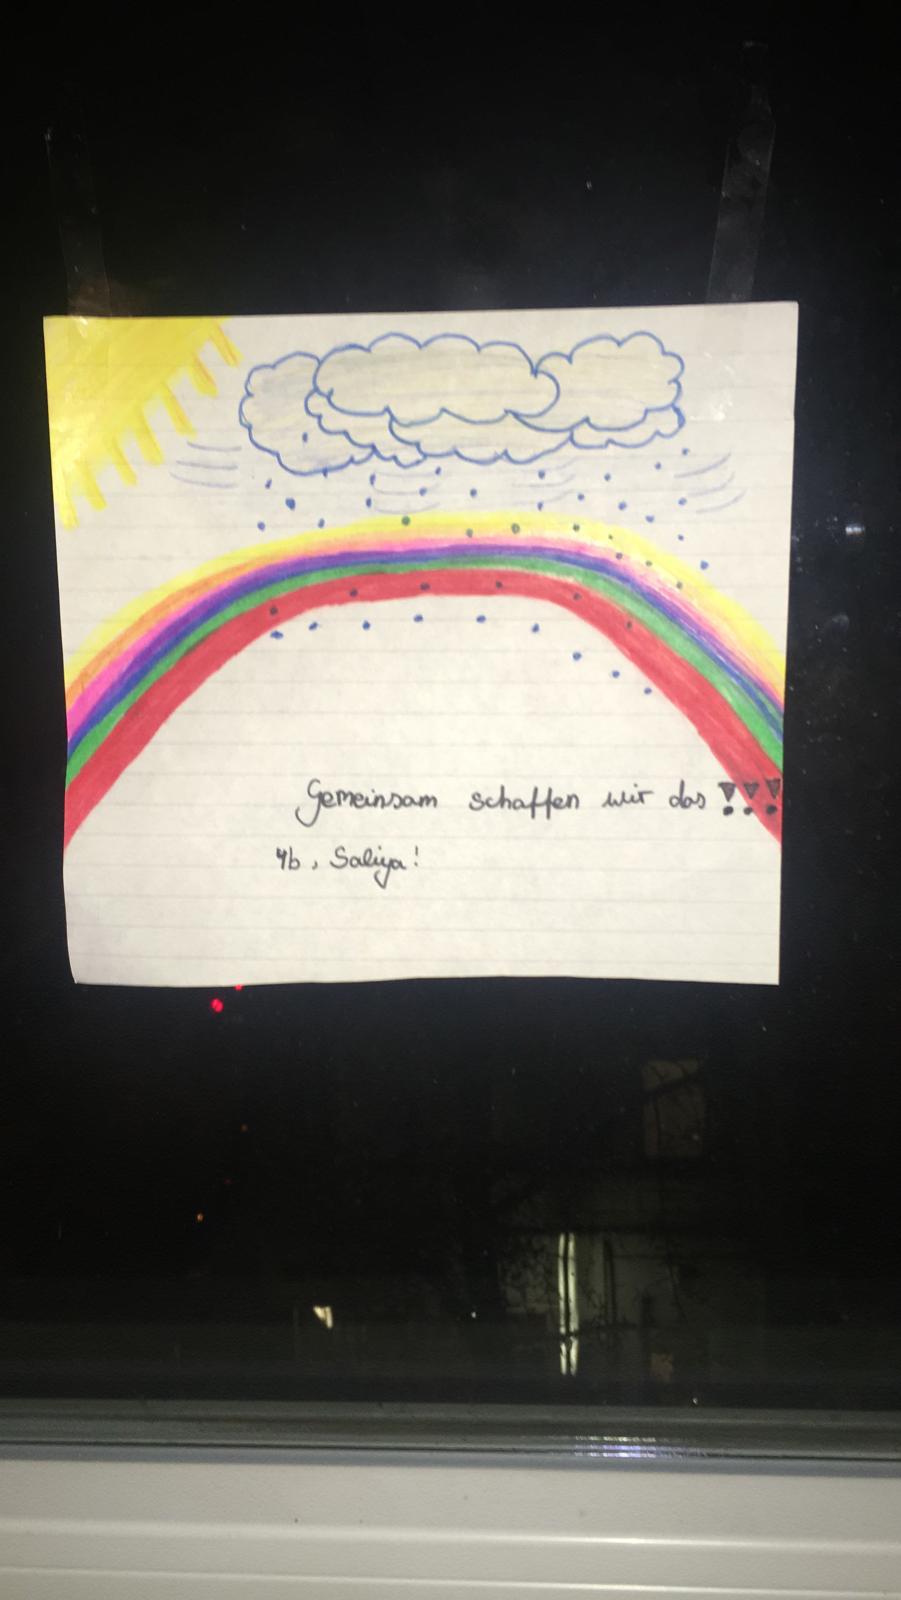 Gemeinsam schaffen wir das !!!
4b, Saliya!